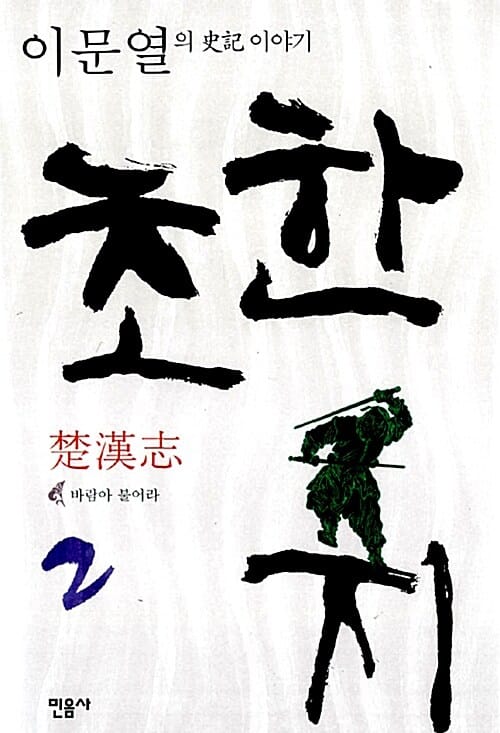 이문열의 史記 이야기
초한지
楚漢志
바람아 불어라
2
민음사